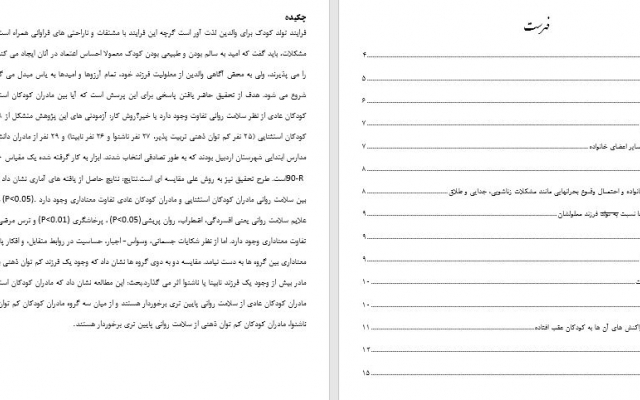 فهرست
۴
۵
۶
۷
سایر اعضای خانواده ۷
۸
خانواده و احتمال وقوع بحرانهایی مانند مشکلات زناشویی، جدایی و طلاق ۸
نسبت به تولد فرزند معلولشان ۹
۹
۹
۱۰
۱۰
واکنش های آن ها به کودکان عقب افتاده ۱۱
۱۲
۱۵
چکیده
فرایند تولد کودک برای والدین لذت آور است گرچه این فرایند با مشقات و ناراحتی های فراوانی همراه است
مشکلات، باید گفت که امید به سالم بودن و طبیعی بودن کودک معمولا احساس اعتماد در آنان ایجاد می کند
را می پذیرند، ولی به محض آگاهی والدین از معلولیت فرزند خود، تمام آرزوها و امیدها به یاس مبدل می گ
شروع می شود. هدف از تحقیق حاضر یافتن پاسخی برای این پرسش است که آیا بین مادران کودکان است
کودکان عادی از نظر سلامت روانی تفاوت وجود دارد یا خیر؟روش کار: آزمودنی های این پژوهش متشکل از
کودکان استثنایی (۲۵ نفر کم توان ذهنی تربیت پذیر، ۲۷ نفر ناشنوا و ۲۴ نفر نابینا) و ۲۹ نفر از مادران دانش
مدارس ابتدایی شهرستان اردبیل بودند که به طور تصادفی انتخاب شدند. ابزار به کار گرفته شده یک مقیاس
90-Rاست. طرح تحقیق نیز به روش علی مقایسه ای است.نتایج: نتایج حاصل از یافته های آماری نشان داد
بین سلامت روانی مادران کودکان استثنایی و مادران کودکان عادی تفاوت معناداری وجود دارد .(P<0.05)
علایم سلامت روانی یعنی افسردگی، اضطراب، روان پریشی(P<0.05) ، پرخاشگری (P<0.01) و ترس مرضی
تفاوت معناداری وجود دارد. اما از نظر شکایات جسمانی، وسواس-اجبار، حساسیت در روابط متقابل، و افکار پا
معناداری بین گروه ها به دست نیامد. مقایسه دو به دوی گروه ها نشان داد که وجود یک فرزند کم توان ذهنی
مادر بیش از وجود یک فرزند نابینا یا ناشنوا اثر می گذارد.بحث: این مطالعه نشان داد که مادران کودکان است
مادران کودکان عادی از سلامت روانی پایین تری برخوردار هستند و از میان سه گروه مادران کودکان کم توان
ناشنوا، مادران کودکان کم توان ذهنی از سلامت روانی پایین تری برخوردار هستند.